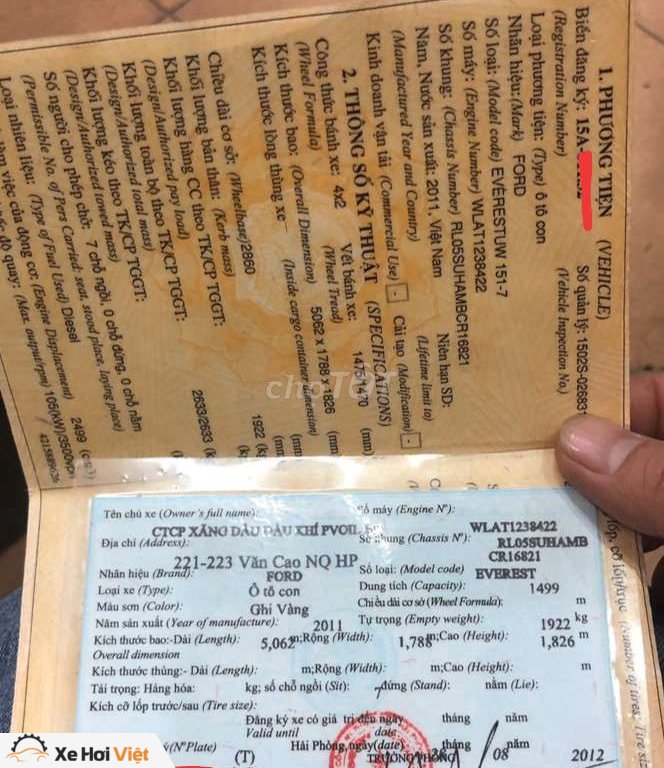 1. PHƯƠNG TIỆN (VEHICLE)
Biển đăng ký: 15A-
Số quản lý: 1502S-026831
(Registration Number)
(Vehicle Inspection No.)
Loại phương tiện: (Type) ô tô con
Nhãn hiệu: (Mark) FORD
Số loại: (Model code) EVERESTUW 151-7
Số máy: (Engine Number) WLAT1238422
Số khung: (Chassis Number) RL05SUHAMBCR16821
Năm, Nước sản xuất: 2011, Việt Nam
Niên hạn SD:
(Manufactured Year and Country)
(Lifetime limit to)
Kinh doanh vận tải (Commercial Use) -
Cải tạo (Modification) -
2. THÔNG SỐ KỸ THUẬT (SPECIFICATIONS)
Công thức bánh xe: 4x2
Vết bánh xe: 1475/1470 (mm)
(Wheel Formula)
(Wheel Tread)
Kích thước bao: (Overall Dimension) 5062 x 1788 x 1826 (mm)
Kích thước lòng thùng xe
(Inside cargo container dimension) (mm)
Chiều dài cơ sở: (Wheelbase) 2860
Khối lượng bản thân: (Kerb mass) 1922 (kg)
Khối lượng hàng CC theo TK/CP TGGT:
(Design/Authorized pay load)
Khối lượng toàn bộ theo TK/CP TGGT: 2633/2633
(Design/Authorized total mass)
Khối lượng kéo theo TK/CP TGGT:
(Design/Authorized towed mass)
Số người cho phép chở: 7 chỗ ngồi, 0 chỗ đứng, 0 chỗ nằm
(Permissible No. of Pers Carried: seat, stood place, laying place)
Loại nhiên liệu: (Type of Fuel Used) Diesel
làm việc của động cơ: (Engine Displacement) 2499
độ quay: (Max. output/rpm) 105(kW)/3500vph
chợTỐT
Tên chủ xe (Owner's full name):
Số máy (Engine Nº): WLAT1238422
CTCP XĂNG DẦU DẦU KHÍ PVOIL
Địa chỉ (Address):
Số khung (Chassis Nº): RL05SUHAMB
221-223 Văn Cao NQ HP
CR16821
Nhãn hiệu (Brand): FORD
Số loại: (Model code) EVEREST
Loại xe (Type): Ô tô con
Dung tích (Capacity): 1499
Màu sơn (Color): Ghi Vàng
Chiều dài cơ sở (Wheel Formula): m
Năm sản xuất (Year of manufacture): 2011
Tự trọng (Empty weight): 1922 kg
Kích thước bao: Dài (Length): 5,062 m; Rộng (Width): 1,788 m; Cao (Height): 1,826 m
Overall dimension
Kích thước thùng: - Dài (Length): m; Rộng (Width): m; Cao (Height): m
Tải trọng: Hàng hóa: kg; số chỗ ngồi (Sit): đứng (Stand): nằm (Lie):
Kích cỡ lốp trước/sau (Tire size):
Đăng ký xe có giá trị đến ngày tháng năm
Valid until date
(NºPlate) (T) Hải Phòng, ngày (date) tháng năm
08 2012
TRƯỞNG PHÒNG
lốp, cỡ lốp/trục (Number of tires; Tire size
Xe Hơi Việt